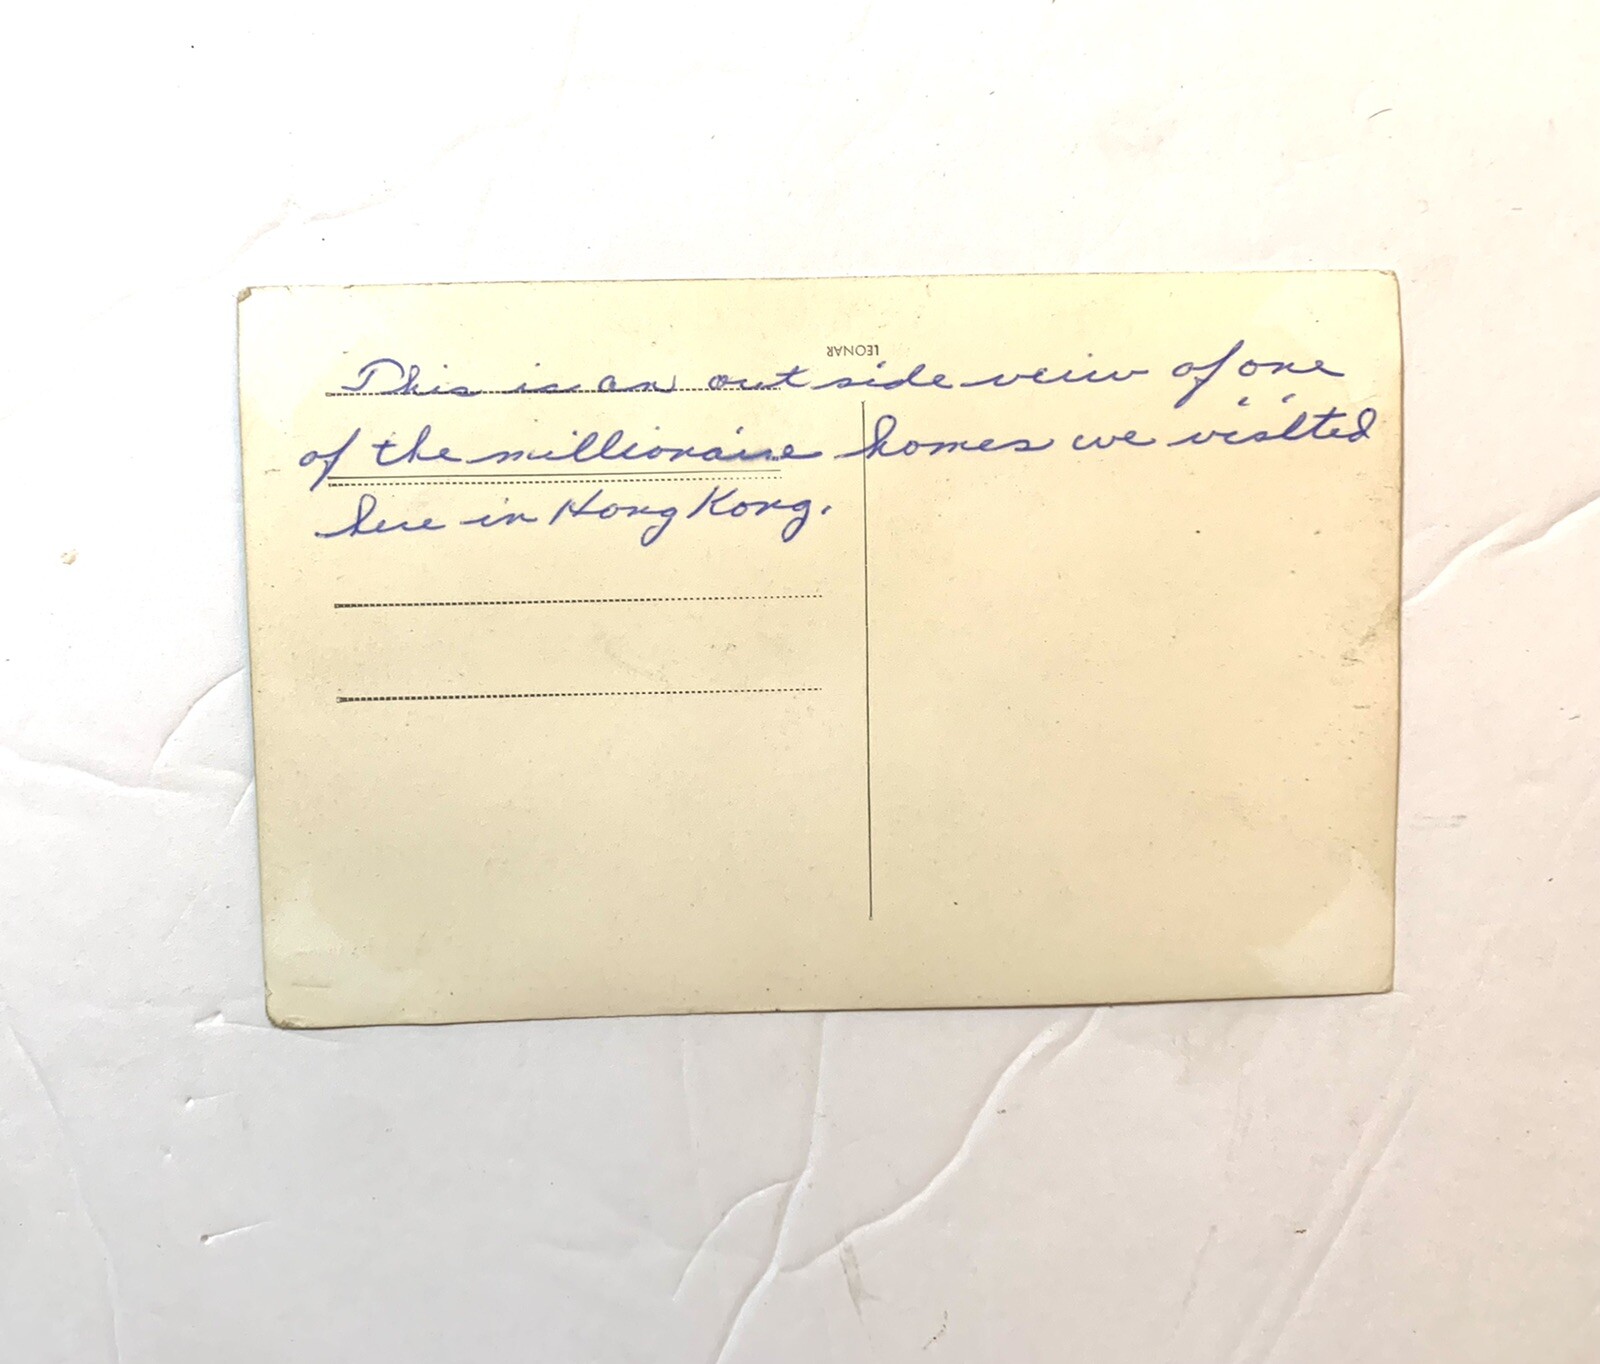 LEONAR
This is an out side veiw of one
of the millionaire homes we visited
here in Hong Kong.